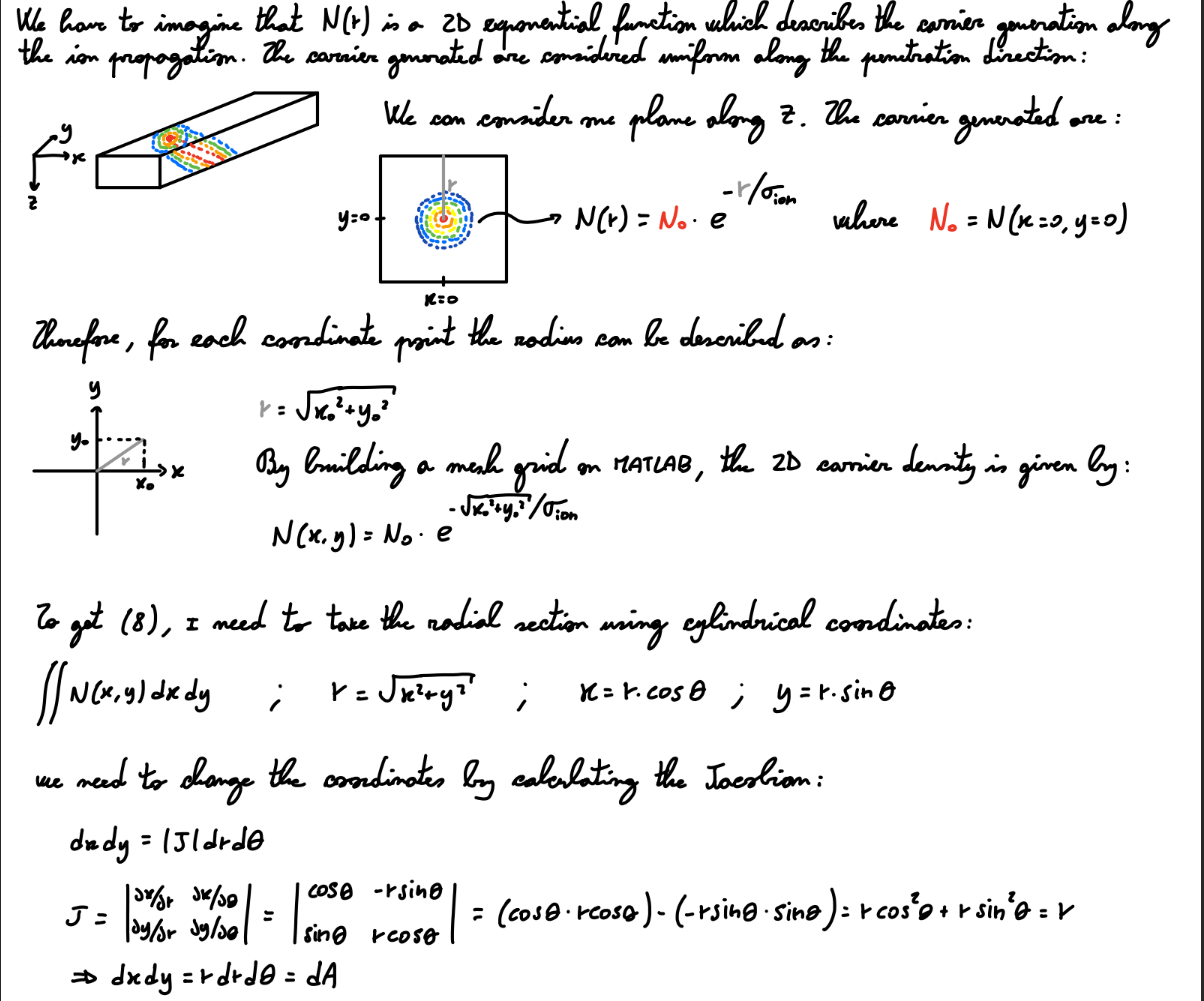 We have to imagine that N(r) is a 2D exponential function which describes the carrier generation along
the ion propagation. The carrier generated are considered uniform along the penetration direction:
We can consider one plane along z. The carrier generated are:
y
x
z
r
y=0
x=0
N(r) = N₀ · e^(-r/σ_ion) where N₀ = N(x=0, y=0)
Therefore, for each coordinate point the radius can be described as:
y
y₀
r
x₀
x
r = √(x₀²+y₀²)
By building a mesh grid on MATLAB, the 2D carrier density is given by:
N(x,y) = N₀ · e^(-√(x₀²+y₀²)/σ_ion)
To get (8), I need to take the radial section using cylindrical coordinates:
∬ N(x,y) dx dy ; r = √(x²+y²) ; x = r·cosθ ; y = r·sinθ
we need to change the coordinates by calculating the Jacobian:
dxdy = |J|drdθ
J = |∂x/∂r ∂x/∂θ| = |cosθ -rsinθ| = (cosθ·rcosθ) - (-rsinθ·sinθ) = rcos²θ + rsin²θ = r
|∂y/∂r ∂y/∂θ| |sinθ rcosθ|
⇒ dxdy = rdrdθ = dA